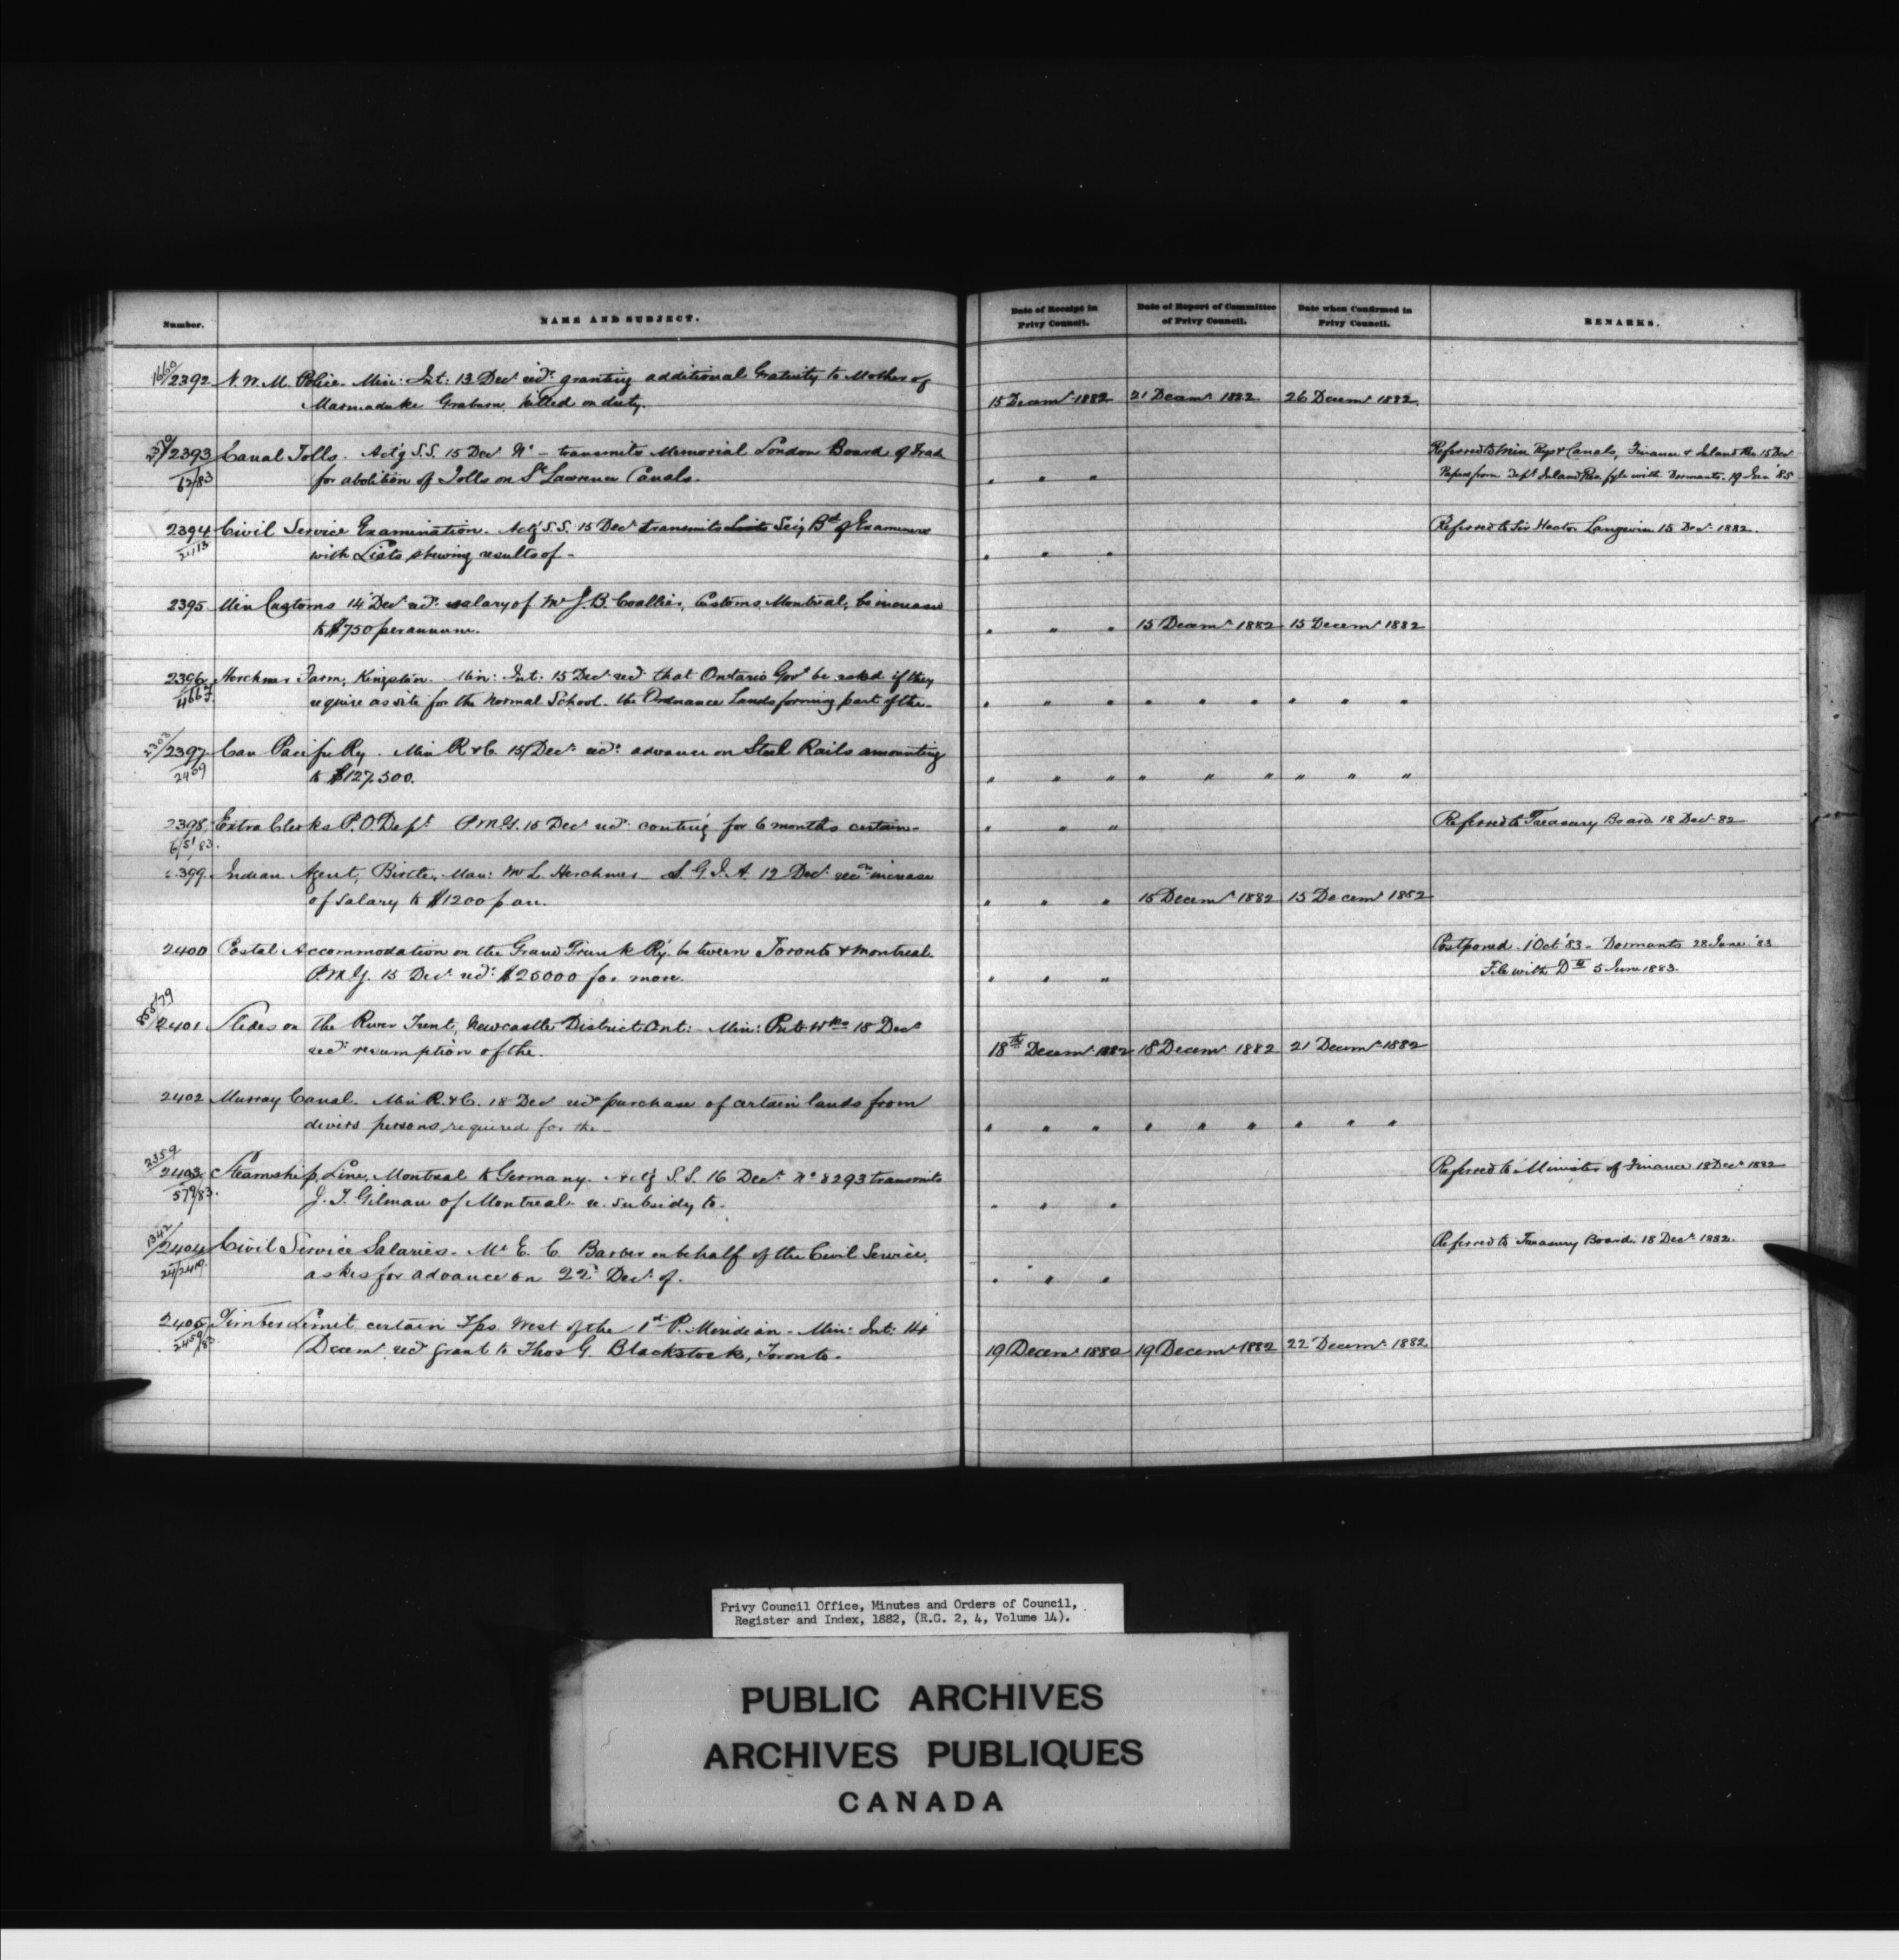 Number.
NAME AND SUBJECT.
Date of Receipt in Privy Council.
Date of Report of Committee of Privy Council.
Date when Confirmed in Privy Council.
REMARKS.
1660/2392 N. W. M. Police. Min: Int: 13 Decr recds granting additional Gratuity to Mother of
Marmaduke Graburn, killed on duty.
15 Decemr 1882 21 Decemr 1882 26 Decemr 1882
2393 Canal Tolls. Act'g S.S. 15 Decr No – transmits Memorial London Board of Trade
62/83 for abolition of Tolls on St Lawrence Canals.
" " "
Referred to Min Rys & Canals, Finance & Inland Rev 15 Decr
Papers from Dept Inland Rev. fyle with Dormants. 19 Jan '85
2394 Civil Service Examination. Act'g S.S. 15 Decr transmits Lists Bd of Examiners
with Lists shewing results of –
" " "
Referred to Sir Hector Langevin 15 Decr 1882.
2395 Min Customs 14 Decr recds salary of Mr J. B. Coallier, Customs, Montreal, be increased
to $750 per annum.
" " " 15 Decemr 1882 15 Decemr 1882
2396 Herchmer Farm, Kingston. Min: Int. 15 Decr recds that Ontario Govt be asked if they
require as site for the Normal School. the Ordnance Lands forming part of the –
" " " " " " " " "
2303/2397 Can Pacific Ry. Min R & C. 15 Decr recds advance on Steel Rails amounting
2459 to $127,500.
" " " " " " " " "
2398 Extra Clerks P. O. Dept P.M.G. 15 Decr recds conting for 6 months certain –
6/51/83.
" " "
Referred to Treasury Board 18 Decr 82
2399 Indian Agent, Birtle, Man: Mr L. Herchmer – S. G. I. A. 12 Decr recds increase
of salary to $1200 p an.
" " " 15 Decemr 1882 15 Decemr 1882
2400 Postal Accommodation on the Grand Trunk Ry. between Toronto & Montreal.
P.M.G. 15 Decr recds $25000 for more.
" " "
Postponed. 1 Oct '83 – Dormants 28 June '83
File with Do 5 June 1883.
2401 Slides on the River Trent, Newcastle District Ont: – Min: Pub Wks 18 Decr
recds resumption of the.
18th Decemr 1882 18 Decemr 1882 21 Decemr 1882
2402 Murray Canal. Min R. & C. 18 Decr recds purchase of certain lands from
divers persons, required for the –
" " " " " " " " "
2359/2403 Steamship Line, Montreal to Germany. Act'g S.S. 16 Decr No 8293 transmits
579/83. J. T. Gilman of Montreal re. subsidy to.
" " "
Referred to Minister of Finance 18 Decr 1882
1342/2404 Civil Service Salaries. Mr E. C. Barber on behalf of the Civil Service,
asks for advance on 22d Decr of.
" " "
Referred to Treasury Board. 18 Decr 1882.
2405 Timber Limit certain Tps West of the 1st P. Meridian – Min: Int: 14
Decemr recds grant to Thos G. Blackstock, Toronto.
19 Decemr 1882 19 Decemr 1882 22 Decemr 1882
Privy Council Office, Minutes and Orders of Council,
Register and Index, 1882, (R.G. 2, 4, Volume 14).
PUBLIC ARCHIVES
ARCHIVES PUBLIQUES
CANADA